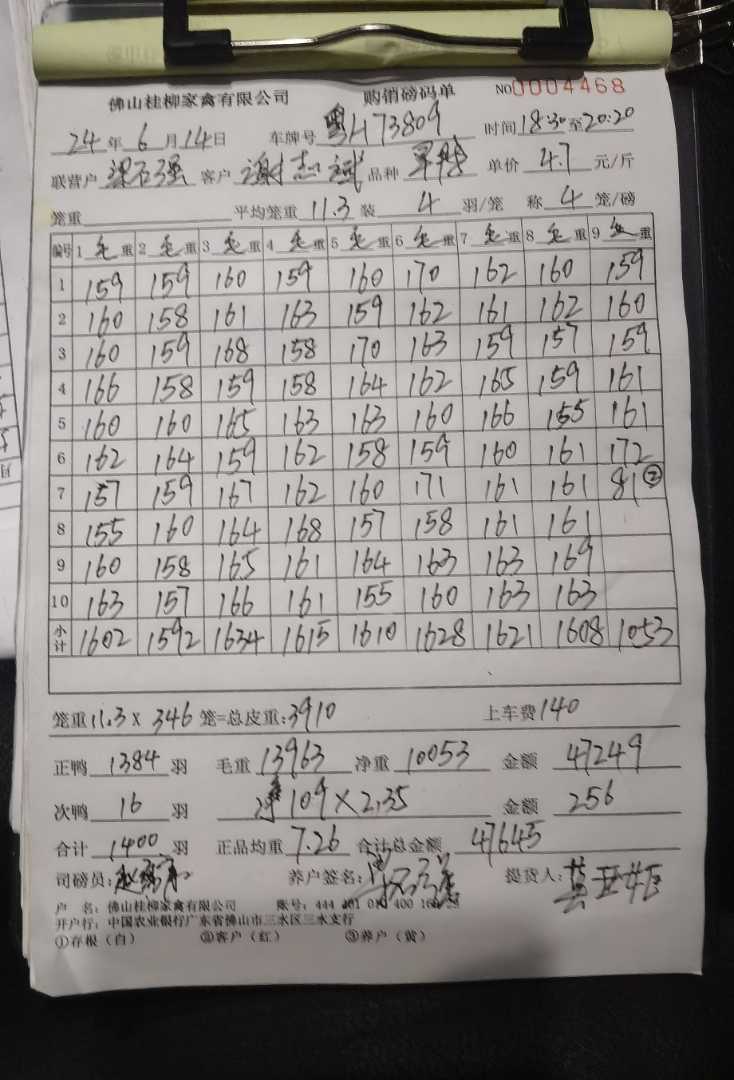 佛山桂柳家禽有限公司 购销磅码单 NO0004468
24年6月14日 车牌号粤H73809 时间18:30至20:20
联营户 客户谢志斌 品种 单价4.7元/斤
笼重 平均笼重11.3 装4羽/笼 称4笼/磅
编号 1毛重 2毛重 3毛重 4毛重 5毛重 6毛重 7毛重 8毛重 9毛重
1 159 159 160 159 160 170 162 160 159
2 160 158 161 163 159 162 161 162 160
3 160 159 168 158 170 163 159 157 159
4 166 158 159 158 164 162 165 159 161
5 160 160 165 163 163 160 166 155 161
6 162 164 159 162 158 159 160 161 172
7 157 159 167 162 160 171 161 161 81②
8 155 160 164 168 157 158 161 161
9 160 158 165 161 164 163 163 169
10 163 157 166 161 155 160 163 163
小计 1602 1592 1634 1615 1610 1628 1621 1608 1053
笼重11.3×346笼=总皮重:3910 上车费140
正鸭1384羽 毛重13963 净重10053 金额47249
次鸭16羽 净109×2.35 金额256
合计1400羽 正品均重7.26 合计总金额47645
司磅员: 养户签名: 提货人:
户 名:佛山桂柳家禽有限公司 账号:444
开户行:中国农业银行广东省佛山市三水区三水支行
①存根(白) ②客户(红) ③养户(黄)